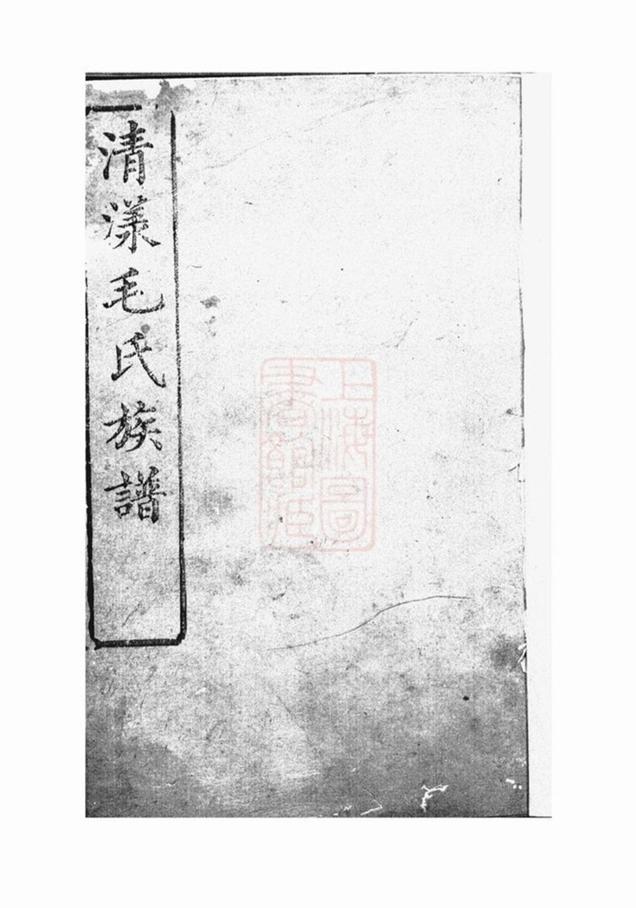 清漾毛氏族譜
上海圖
書館藏